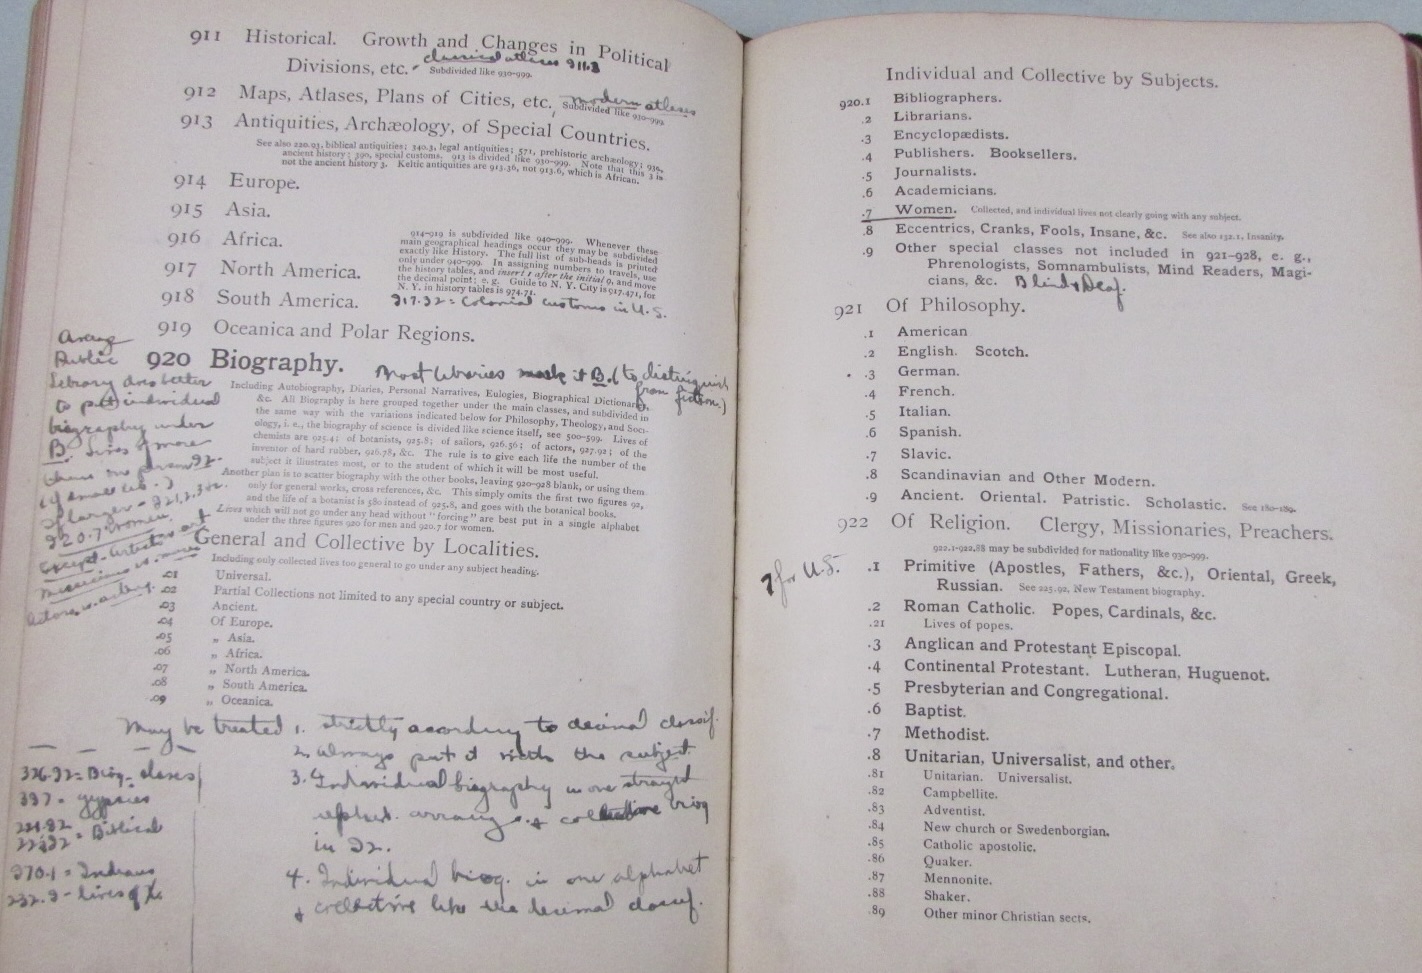 911 Historical. Growth and Changes in Political
Divisions, etc. classical atlases 911.3
Subdivided like 930-999.
912 Maps, Atlases, Plans of Cities, etc. modern atlases
Subdivided like 930-999.
913 Antiquities, Archæology, of Special Countries.
See also 220.93, biblical antiquities; 340.3, legal antiquities; 571, prehistoric archæology; 930,
ancient history; 390, special customs. 913 is divided like 930-999. Note that this 3 is
not the ancient history 3. Keltic antiquities are 913.36, not 913.6, which is African.
914 Europe.
915 Asia.
916 Africa.
917 North America.
918 South America.
914-919 is subdivided like 940-999. Whenever these
main geographical headings occur they may be subdivided
exactly like History. The full list of sub-heads is printed
only under 940-999. In assigning numbers to travels, use
the history tables, and insert 1 after the initial 9, and move
the decimal point; e. g. Guide to N. Y. City is 917.471, for
N. Y. in history tables is 974.71.
917.32 = Colonial customs in U.S.
919 Oceanica and Polar Regions.
920 Biography. Most libraries mark it B. (to distinguish
from fiction.)
Average
Public
Library does better
to put individual
biography under
B. Lives of more
than one person 92.
Including Autobiography, Diaries, Personal Narratives, Eulogies, Biographical Dictionaries,
&c. All Biography is here grouped together under the main classes, and subdivided in
the same way with the variations indicated below for Philosophy, Theology, and Soci-
ology, i. e., the biography of science is divided like science itself, see 500-599. Lives of
chemists are 925.4; of botanists, 925.8; of sailors, 926.56; of actors, 927.92; of the
inventor of hard rubber, 926.78, &c. The rule is to give each life the number of the
subject it illustrates most, or to the student of which it will be most useful.
Another plan is to scatter biography with the other books, leaving 920-928 blank, or using them
only for general works, cross references, &c. This simply omits the first two figures 92,
and the life of a botanist is 580 instead of 925.8, and goes with the botanical books.
Lives which will not go under any head without "forcing" are best put in a single alphabet
under the three figures 920 for men and 920.7 for women.
920.7 women.
General and Collective by Localities.
Including only collected lives too general to go under any subject heading.
.01 Universal.
.02 Partial Collections not limited to any special country or subject.
.03 Ancient.
.04 Of Europe.
.05 „ Asia.
.06 „ Africa.
.07 „ North America.
.08 „ South America.
.09 „ Oceanica.
May be treated 1. strictly according to decimal classif.
2. always put it with the subject.
3. Individual biography in one straight
alphab. arrang. & collective biog
in 92.
4. Individual biog. in one alphabet
& collective like the decimal classif.
397 = gypsies
= Biblical
970.1 = Indians
232.9 - lives of X
Individual and Collective by Subjects.
920.1 Bibliographers.
.2 Librarians.
.3 Encyclopædists.
.4 Publishers. Booksellers.
.5 Journalists.
.6 Academicians.
.7 Women. Collected, and individual lives not clearly going with any subject.
.8 Eccentrics, Cranks, Fools, Insane, &c. See also 132.1, Insanity.
.9 Other special classes not included in 921-928, e. g.,
Phrenologists, Somnambulists, Mind Readers, Magi-
cians, &c. Blind & Deaf.
921 Of Philosophy.
.1 American
.2 English. Scotch.
.3 German.
.4 French.
.5 Italian.
.6 Spanish.
.7 Slavic.
.8 Scandinavian and Other Modern.
.9 Ancient. Oriental. Patristic. Scholastic. See 180-189.
922 Of Religion. Clergy, Missionaries, Preachers.
922.1-922.88 may be subdivided for nationality like 930-999.
7 for U.S.
.1 Primitive (Apostles, Fathers, &c.), Oriental, Greek,
Russian. See 225.92, New Testament biography.
.2 Roman Catholic. Popes, Cardinals, &c.
.21 Lives of popes.
.3 Anglican and Protestant Episcopal.
.4 Continental Protestant. Lutheran, Huguenot.
.5 Presbyterian and Congregational.
.6 Baptist.
.7 Methodist.
.8 Unitarian, Universalist, and other.
.81 Unitarian. Universalist.
.82 Campbellite.
.83 Adventist.
.84 New church or Swedenborgian.
.85 Catholic apostolic.
.86 Quaker.
.87 Mennonite.
.88 Shaker.
.89 Other minor Christian sects.